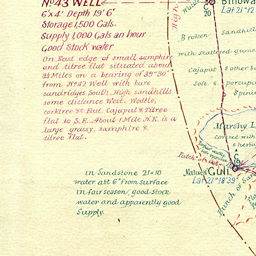 No 43 WELL
6'x4' Depth 19' 6"
Storage 1,500 Gals.
Supply 1,000 Gals an hour
Good Stock water
On East edge of small samphire
and titree flat situated about
Miles on a bearing of 39°30'
from No 42 Well with bare
sandridges South. High sandhills
some distance West. Wattle,
corktree & East. Cajaput & titree
flat to S.E. About 1 Mile N.E. is a
large grassy, samphire &
titree flat.
in Sandstone 21×10
water at 6" from Surface
in fair season, good Stock
water and apparently good
Supply.
High
Lat 21°
Broken Sandhills
with scattered
Cajaput & other
Sole &
Marshy
Patch
Natives Guli
Lat 21° 18' 39"